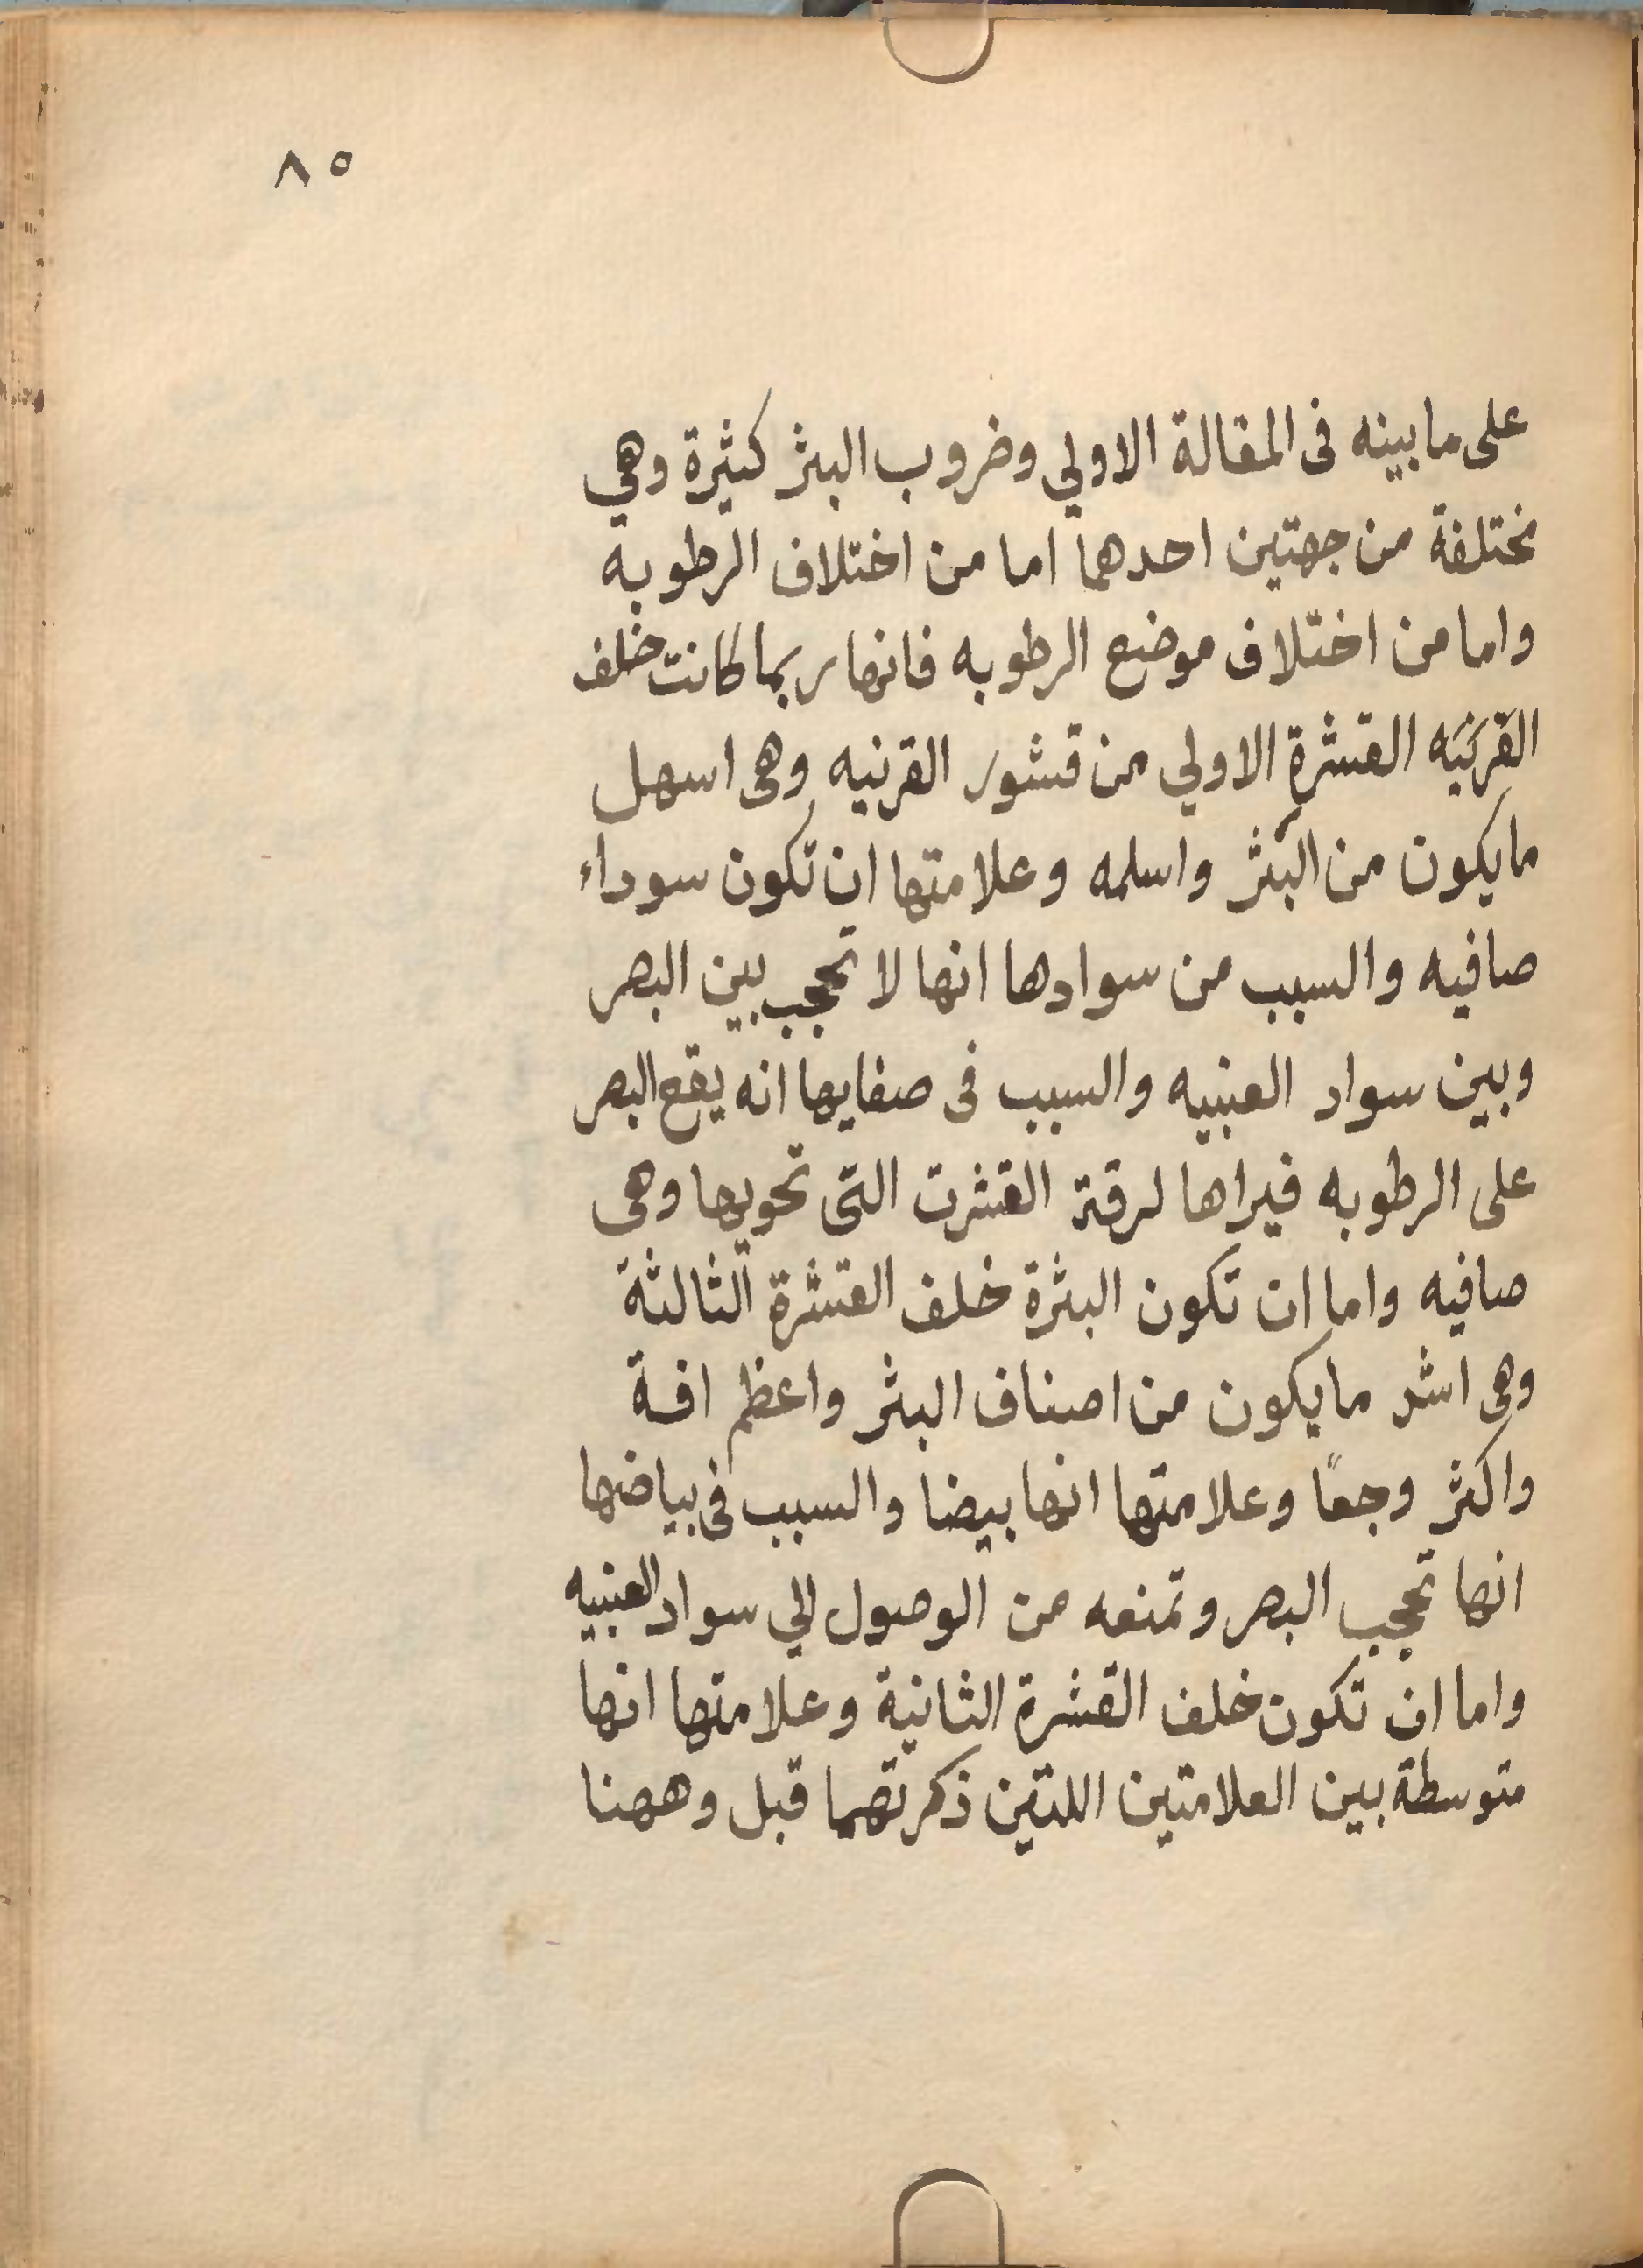 ٨٥
على ما بينه فى المقالة الاولي وضروب البثر كثيرة وهي
مختلفة من جهتين احدهما اما من اختلاف الرطوبه
واما من اختلاف موضع الرطوبه فانها ربما كانت خلف
القرنيه القشرة الاولي من قشور القرنيه وهى اسهل
ما يكون من البثر واسلمه وعلامتها ان تكون سوداء
صافيه والسبب من سوادها انها لا تحجب بين البصر
وبين سواد العنبيه والسبب فى صفايها انه يقع البصر
على الرطوبه فيراها لرقة القشرت التى تحويها وهى
صافيه واما ان تكون البثرة خلف القشرة الثالثة
وهى اشر ما يكون من اصناف البثر واعظم افة
واكثر وجعًا وعلامتها انها بيضا والسبب فى بياضها
انها تحجب البصر وتمنعه من الوصول الي سواد العنبيه
واما ان تكون خلف القشرة الثانية وعلامتها انها
متوسطة بين العلامتين اللتين ذكرتهما قبل وههنا